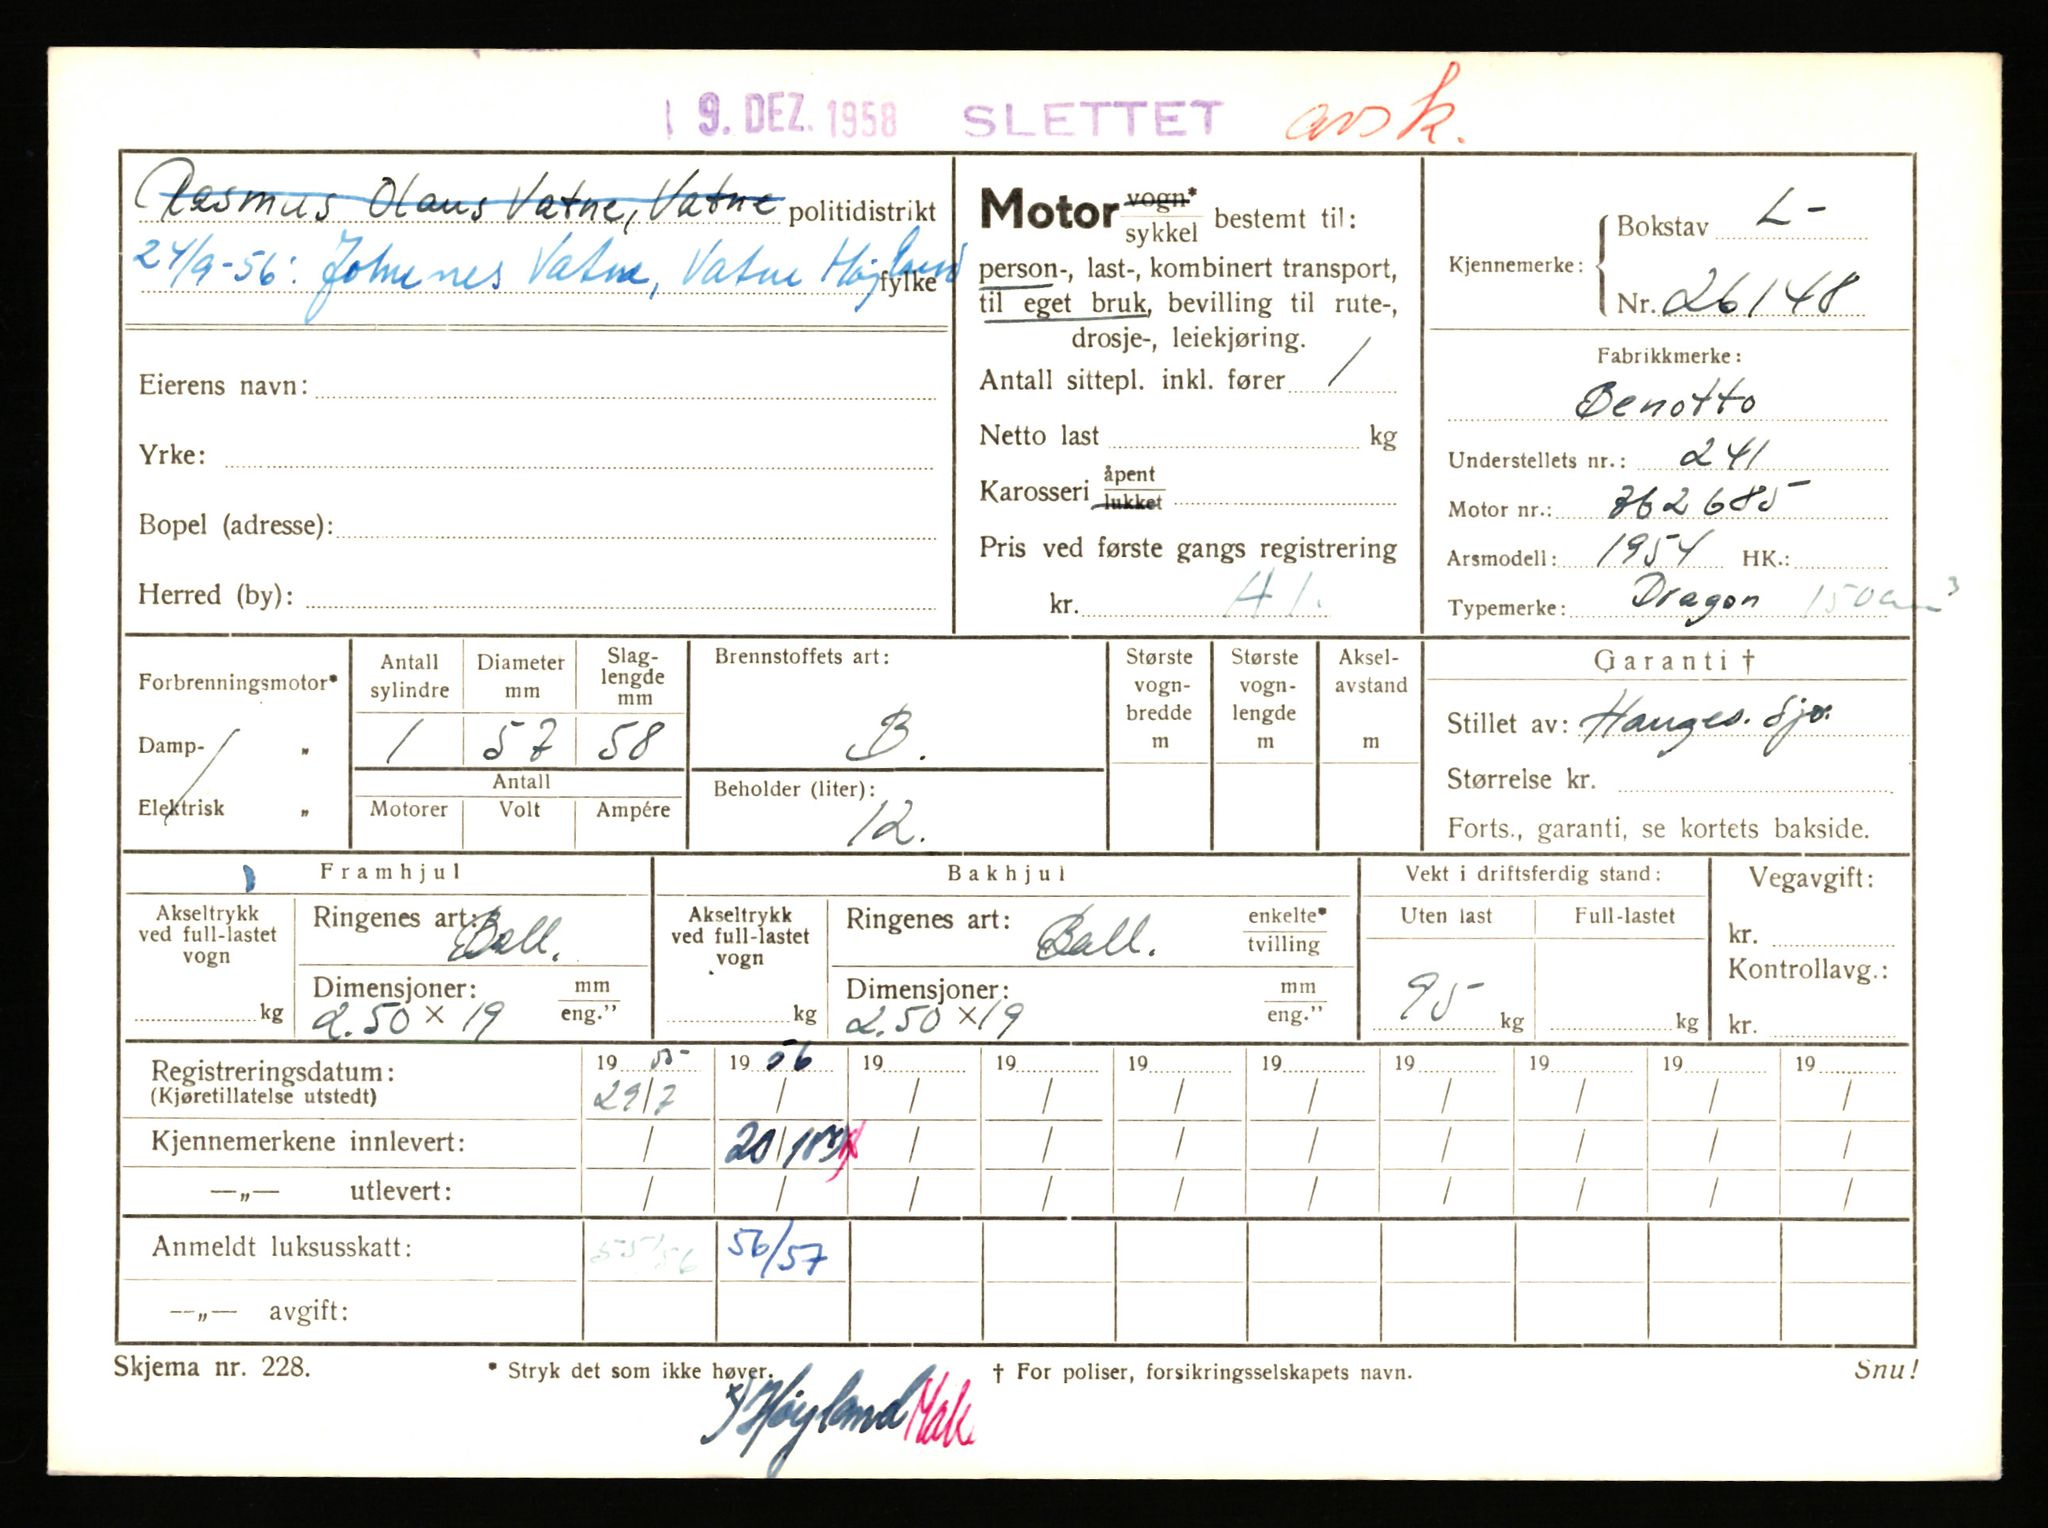 19. DEZ. 1958 SLETTET avsk.
Rasmus Olaus Vatne, Vatne politidistrikt
24/9-56: Johnenes Vatne, Vatne Høyland fylke
Eierens navn:
Yrke:
Bopel (adresse):
Herred (by):
Motor vogn* sykkel bestemt til:
person-, last-, kombinert transport,
til eget bruk, bevilling til rute-,
drosje-, leiekjøring.
Antall sittepl. inkl. fører 1
Netto last kg
Karosseri åpent lukket
Pris ved første gangs registrering
kr. A 1.
Kjennemerke: Bokstav L-
Nr. 26148
Fabrikkmerke:
Benotto
Understellets nr.: 241
Motor nr.: 762685
Arsmodell: 1954 HK.:
Typemerke: Dragon 150 cm³
Forbrenningsmotor*
Damp- „
Elektrisk „
Antall sylindre 1
Diameter mm 57
Slag-lengde mm 58
Antall
Motorer Volt Ampére
Brennstoffets art:
B.
Beholder (liter):
12.
Største vogn-bredde m
Største vogn-lengde m
Aksel-avstand m
Garanti †
Stillet av: Hauges. Sjø.
Størrelse kr.
Forts., garanti, se kortets bakside.
Framhjul
Akseltrykk ved full-lastet vogn kg
Ringenes art: Ball.
Dimensjoner: mm eng.”
2.50 × 19
Bakhjul
Akseltrykk ved full-lastet vogn kg
Ringenes art: Ball. enkelte* tvilling
Dimensjoner: mm eng.”
2.50 × 19
Vekt i driftsferdig stand:
Uten last Full-lastet
95 kg kg
Vegavgift:
kr.
Kontrollavg.:
kr.
Registreringsdatum: 19 55 19 56 19 19 19 19 19 19 19 19
(Kjøretillatelse utstedt) 29/7 / / / / / / / / /
Kjennemerkene innlevert: / 20/ / / / / / / / /
—„— utlevert: / / / / / / / / / /
Anmeldt luksusskatt: 55/56 56/57
—„— avgift:
Skjema nr. 228. * Stryk det som ikke høver. † For poliser, forsikringsselskapets navn. Snu!
x) Høyland Mak.